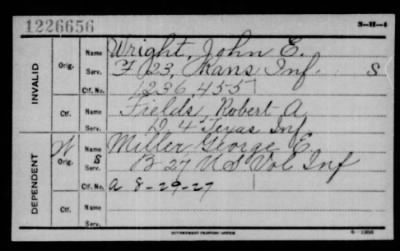 1226656
3-H-4
INVALID
Orig.
Name Wright, John E.
Serv. F 23, Kans Inf. S
Ctf. No. 1236,455
Ctf.
Name Fields, Robert A
Serv. D 4 Texas Inf
DEPENDENT
Orig. S
Name Miller George E.
Serv. B 27 U S Vol Inf
Ctf. No. a 8-29-27
Ctf.
Name
Serv.